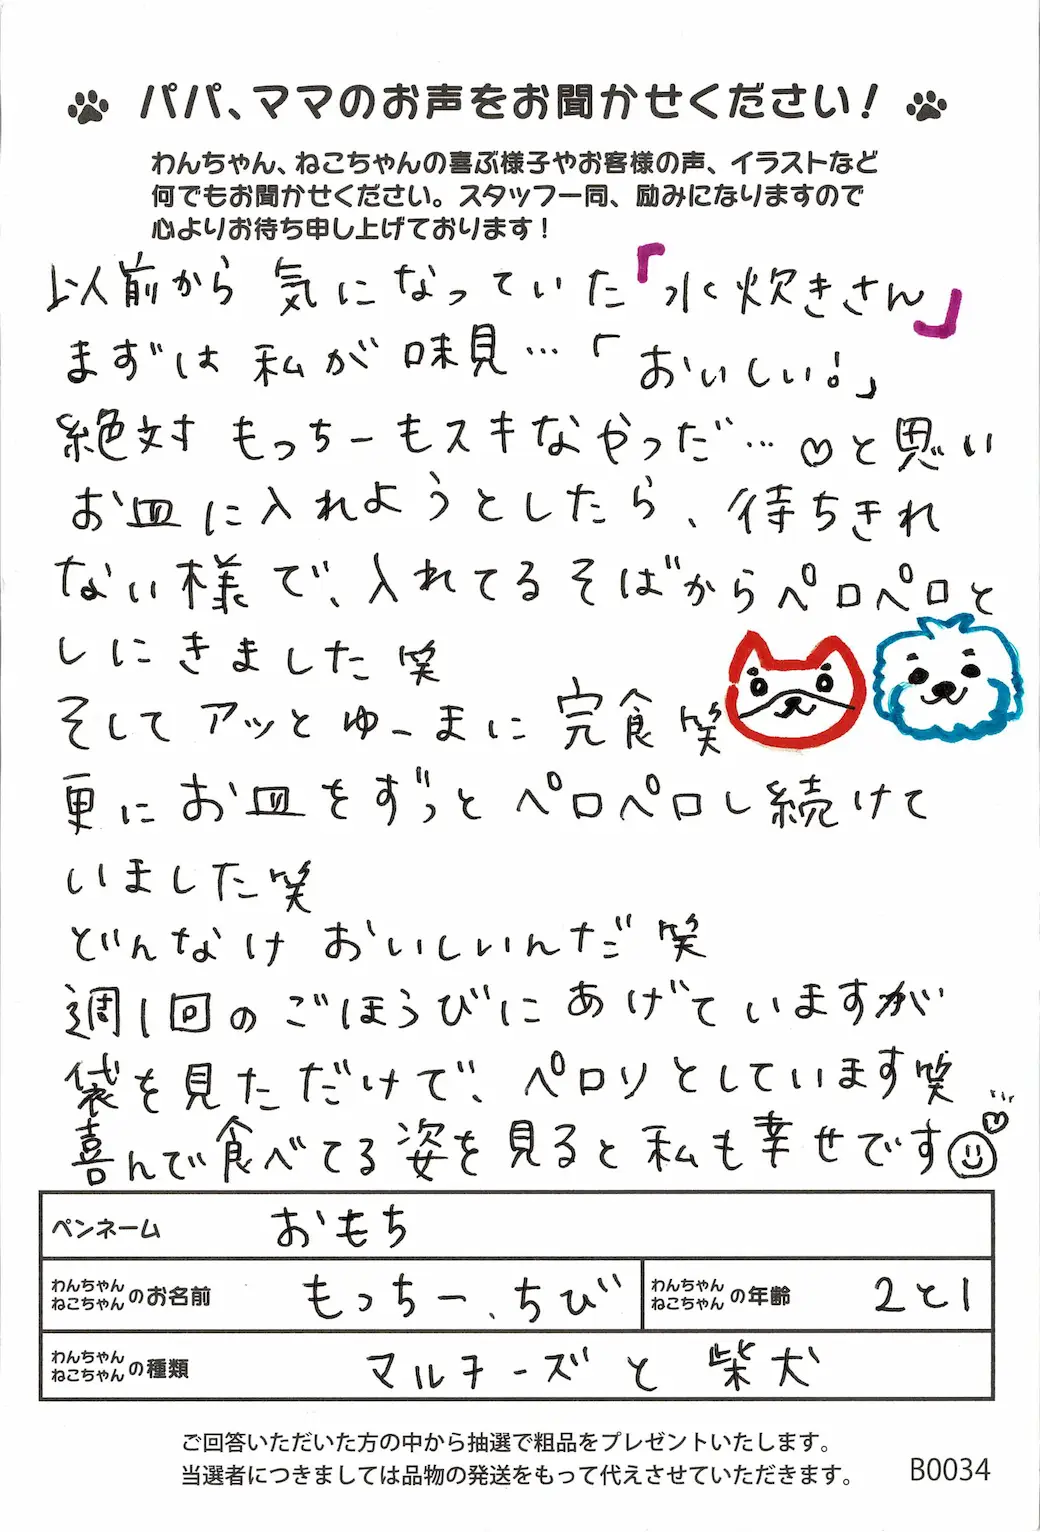 パパ、ママのお声をお聞かせください！
わんちゃん、ねこちゃんの喜ぶ様子やお客様の声、イラストなど
何でもお聞かせください。スタッフ一同、励みになりますので
心よりお待ち申し上げております！
以前から 気になっていた「水炊きさん」
まずは 私が 味見…「おいしい！」
絶対す もっちーもスキなやつだ…♡と思い
お皿に入れようとしたら、待ちきれ
ない様で、入れてるそばからペロペロと
しにきました 笑
そして アッと ゆーまに 完食 笑
更に お皿を ずっと ペロペロし続けて
いました笑
どんなけ おいしいんだ 笑
週1回の ごほうびに あげていますが
袋を見ただけで、ペロリとしています笑
喜んで食べてる姿を見ると私も幸せです
ペンネーム おもち
わんちゃん ねこちゃん のお名前 もっちー、ちび わんちゃん ねこちゃん の年齢 2と1
わんちゃん ねこちゃん の種類 マルチーズ と 柴犬
ご回答いただいた方の中から抽選で粗品をプレゼントいたします。
当選者につきましては品物の発送をもって代えさせていただきます。 B0034